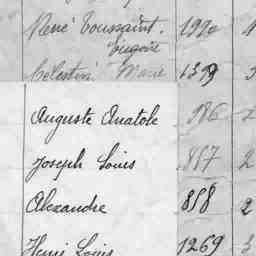 René Toussaint. 1920
Grégoire
Célestin Marie 1319
Auguste Anatole 986
Joseph Louis 857 2
Alexandre 858 2
Henri Louis 1269 3